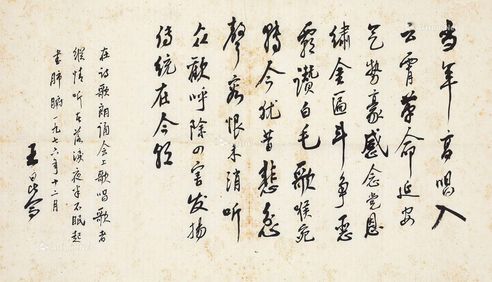 当年高唱入
云霄革命延安
气势豪感念党恩
绣金匾斗争恶
霸讚白毛歌喉宛
转今犹昔悲忿
声容恨未消听
众歡呼除四害发扬
传统在今朝
在诗歌朗诵会上歌唱歌者
纵情听者落泪夜半不眠起
书肺腑一九七六年十二月
王昆仑